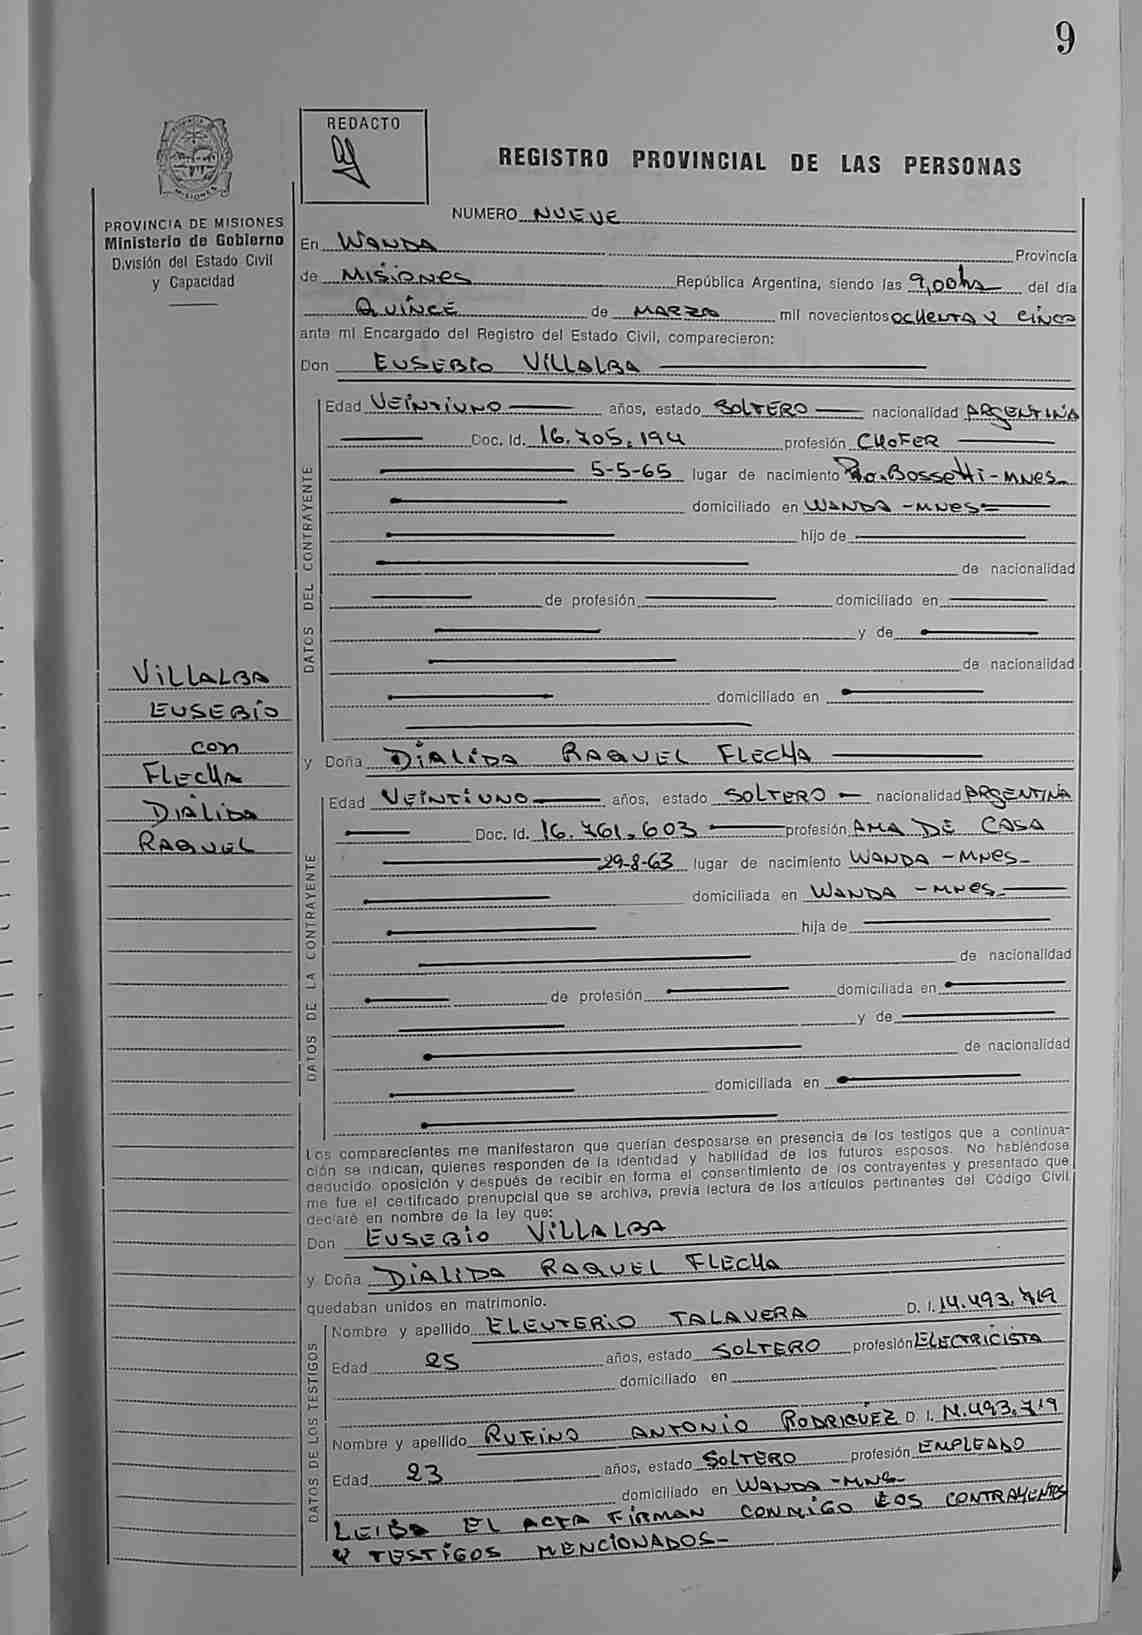 9
REDACTO
REGISTRO PROVINCIAL DE LAS PERSONAS
MISIONES
PROVINCIA DE MISIONES
Ministerio de Gobierno
División del Estado Civil
y Capacidad
NUMERO NUEVE
En WANDA Provincia
de MISIONES República Argentina, siendo las 9,00hs del día
QUINCE de MARZO mil novecientos OCHENTA Y CINCO
ante mí Encargado del Registro del Estado Civil, comparecieron:
Don EUSEBIO VILLALBA
DATOS DEL CONTRAYENTE
Edad VEINTIUNO años, estado SOLTERO nacionalidad ARGENTINA
Doc. Id. 16.705.194 profesión CHOFER
5-5-65 lugar de nacimiento Pto. Bossetti - MNES
domiciliado en WANDA - MNES
hijo de
de nacionalidad
de profesión domiciliado en
y de
de nacionalidad
domiciliado en
VILLALBA
EUSEBIO
con
FLECHA
DIALIDA
RAQUEL
y Doña DIALIDA RAQUEL FLECHA
DATOS DE LA CONTRAYENTE
Edad VEINTIUNO años, estado SOLTERO nacionalidad ARGENTINA
Doc. Id. 16.761.603 profesión AMA DE CASA
29-8-63 lugar de nacimiento WANDA - MNES
domiciliada en WANDA - MNES
hija de
de nacionalidad
de profesión domiciliada en
y de
de nacionalidad
domiciliada en
Los comparecientes me manifestaron que querían desposarse en presencia de los testigos que a continua-
ción se indican, quienes responden de la identidad y habilidad de los futuros esposos. No habiéndose
deducido oposición y después de recibir en forma el consentimiento de los contrayentes y presentado que
me fue el certificado prenupcial que se archiva, previa lectura de los artículos pertinentes del Código Civil
declaré en nombre de la ley que:
Don EUSEBIO VILLALBA
y Doña DIALIDA RAQUEL FLECHA
quedaban unidos en matrimonio.
DATOS DE LOS TESTIGOS
Nombre y apellido ELEUTERIO TALAVERA D. I. 14.493.719
Edad 25 años, estado SOLTERO profesión ELECTRICISTA
domiciliado en
Nombre y apellido RUFINO ANTONIO RODRIGUEZ D I. 14.493.719
Edad 23 años, estado SOLTERO profesión EMPLEADO
domiciliado en WANDA - MNES
LEIDO EL ACTA FIRMAN CONMIGO LOS CONTRAYENTES
Y TESTIGOS MENCIONADOS-